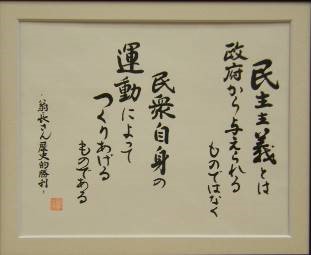 民主主義とは
政府から与えられる
ものではなく
民衆自身の
運動によって
つくりあげる
ものである
・翁長さん歴史的勝利・